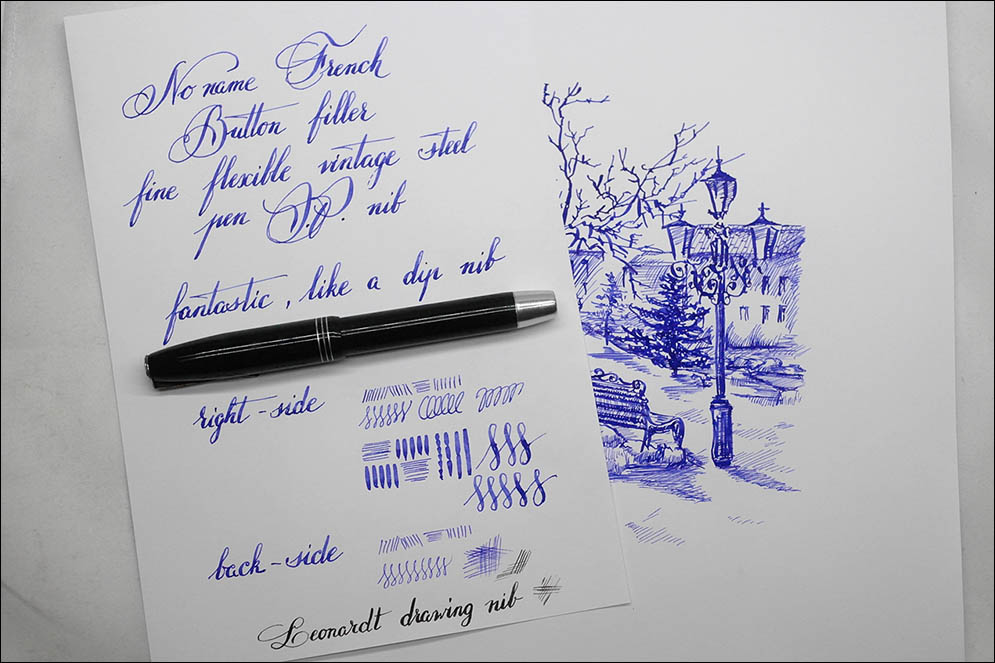 No name French
Button filler
fine flexible vintage steel
pen D.P. nib
fantastic, like a dip nib
right-side
back-side
Leonardt drawing nib